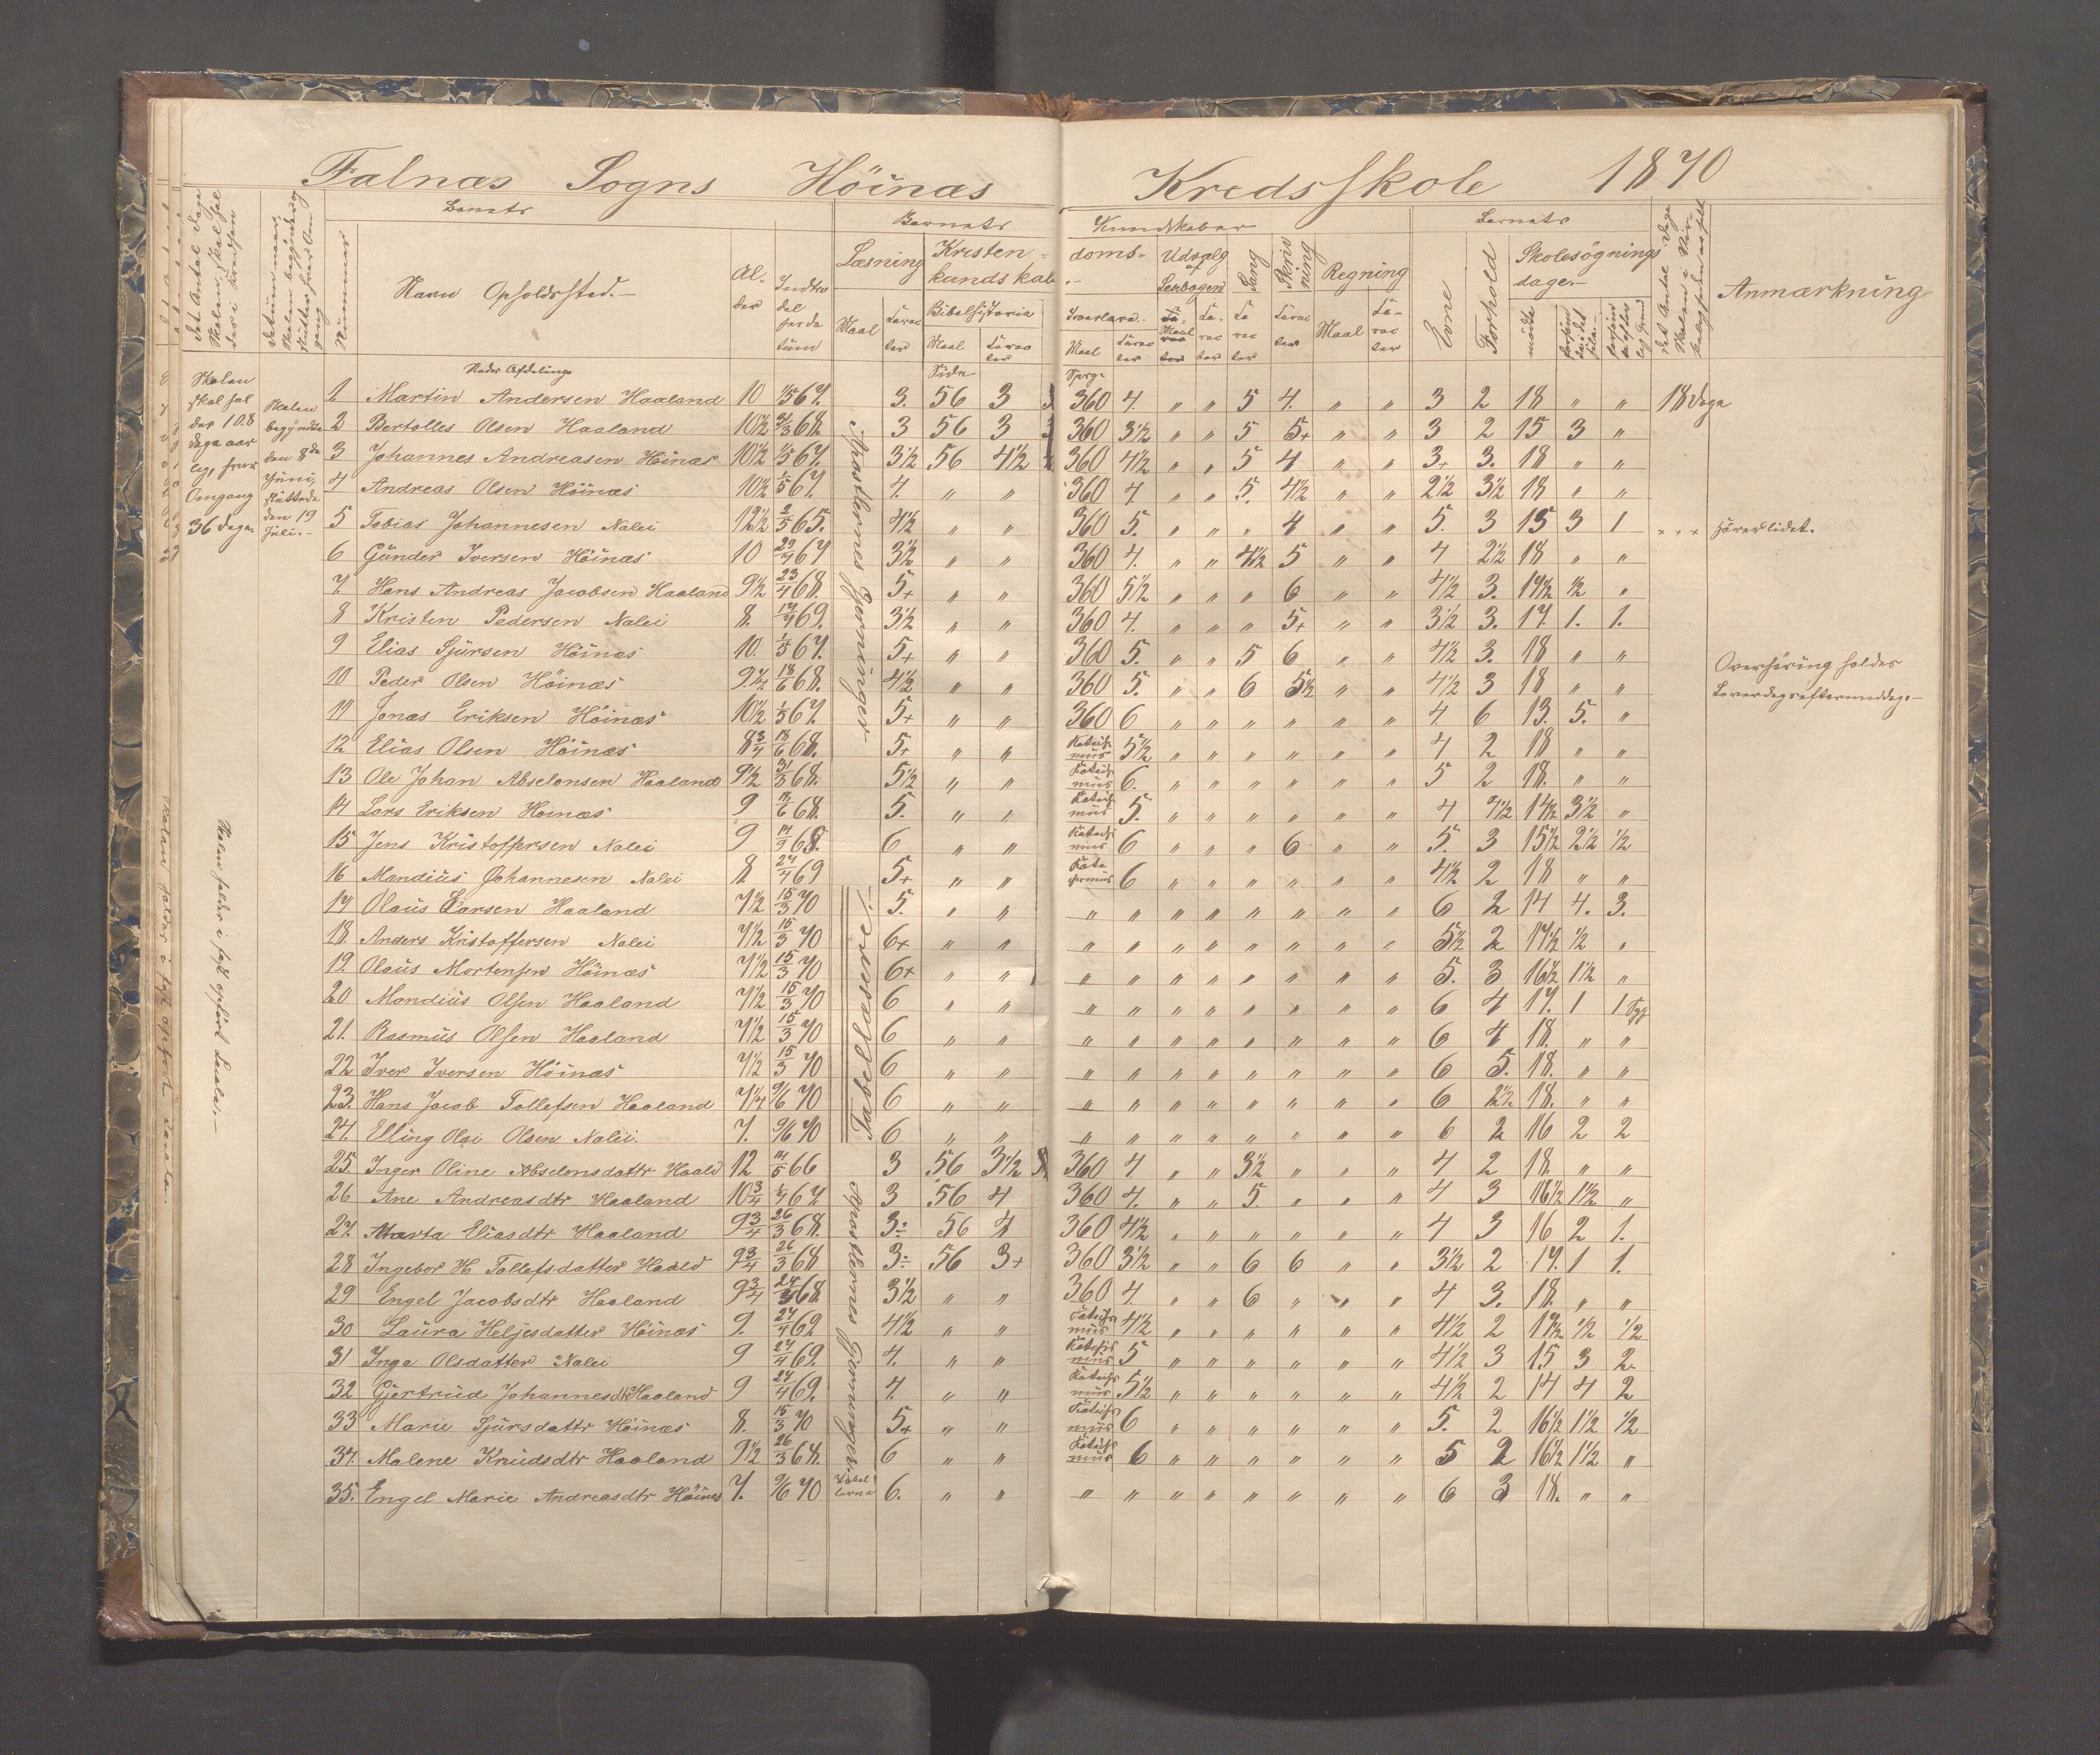 Falnæs Sogns Höinæs Kredsskole 1870
Barnets Barnets Kundskaber Barnets
Nummer Navn Opholdssted. Alder Indtrædelsesdatum Læsning Kristendomskundskab Udvalg af Læsebogen Sang Skrivning Regning Evne Forhold Skolesøgningsdage Anmærkning
Maal Bibelhistorie Maal Maal Maal mødte
Neder Afdeling Side Sprg.
Skolen skal holdes 108 dage aarlig, hver Omgang 36 dage.
Skolen begyndte den 8de Juni, sluttede den 19 Juli.
Skolen holdes i fast opført Locale.
Apostlernes Gjerninger
1. Martin Andersen Haaland 10 1/5 67. 3. 56 3 360 4. „ „ 5 4. „ „ 3 2 18 „ „ 18 dage
2 Bertolles Olsen Haaland 10½ 31/3 68. 3 56 3 360 3½ „ „ 5 5+ „ „ 3 2 15 3 „
3 Johannes Andreasen Höinæs 10½ 1/5 67. 3½ 56 4½ 360 4½ „ „ 5 4 „ „ 3+ 3. 18 „ „
4 Andreas Olsen Höinæs 10½ 1/5 67. 4. „ „ 360 4. „ „ 5. 4½ „ „ 2½ 3½ 18 „ „
5 Tobias Johannesen Nalei 12½ 2/5 65. 4½ „ „ 360 5. „ „ „ 4 „ „ 5. 3 15 3 1 hörer lidet.
6 Gunder Iversen Höinæs 10 29/4 67 3½ „ „ 360 4. „ „ 4½ 5 „ „ 4 2½ 18 „ „
7. Hans Andreas Jacobsen Haaland 9½ 23/4 68. 5+ „ „ 360 5½ „ „ „ 6 „ „ 4½ 3. 17½ ½ „
8 Kristen Pedersen Nalei 8. 69. 3½ „ „ 360 4. „ „ „ 5+ „ „ 3½ 3. 17. 1. 1.
9 Elias Sjursen Höinæs 10. 1/5 67. 5+ „ „ 360 5. „ „ 5 6 „ „ 4½ 3. 18 „ „
10 Peder Olsen Höinæs 9¼ 18/6 68. 4½ „ „ 360 5. „ „ 6 5½ „ „ 4½ 3 18 „ „
Overhöring holdes Löverdagseftermiddag.
11 Jonas Eriksen Höinæs 10½ 1/5 67. 5+ „ „ 360 6 „ „ „ „ „ „ 4 6 13. 5. „
12 Elias Olsen Höinæs 8¾ 18/6 68. 5+ „ „ Katechismus 5½ „ „ „ „ „ „ 4 2 18 „ „
13 Ole Johan Abselonsen Haaland 9½ 31/3 68. 5½ „ „ Katechismus 6. „ „ „ „ „ „ 5 2 18. „ „
14 Lars Eriksen Höinæs 9 18/6 68. 5. „ „ Katechismus 5. „ „ „ „ „ „ 4 4½ 14½ 3½ „
15 Jens Kristoffersen Nalei 9 14/9 68. 6 „ „ Katechismus 6 „ „ „ 6 „ „ 5. 3 15½ 2½ ½
16 Mandius Johannesen Nalei 8 27/4 69 5+ „ „ Katechismus 6 „ „ „ „ „ „ 4½ 2 18 „ „
17 Olaus Larsen Haaland 7½ 15/3 70 5. „ „ „ „ „ „ „ „ „ „ 6 2 14 4. 3.
18. Anders Kristoffersen Nalei 7½ 15/3 70 6+ „ „ „ „ „ „ „ „ „ „ 5½ 2 17½ ½ „
19. Olaus Mortensen Höinæs 7½ 15/3 70 6+ „ „ „ „ „ „ „ „ „ „ 5. 3 16½ 1½ „
20 Mandius Olsen Haaland 7½ 15/3 70 6 „ „ „ „ „ „ „ „ „ „ 6 4 17. 1 1 Syg
21. Rasmus Olsen Haaland 7½ 15/3 70 6 „ „ „ „ „ „ „ „ „ „ 6 4 18. „ „
22 Iver Iversen Höinæs 7½ 15/3 70 6 „ „ „ „ „ „ „ „ „ „ 6 5. 18. „ „
23. Hans Jacob Tollefsen Haaland 7¼ 9/6 70 6 „ „ „ „ „ „ „ „ „ „ 6 2½ 18. „ „
24. Elling Olai Olsen Nalei. 7. 9/6 70 6 „ „ „ „ „ „ „ „ „ „ 6 2 16 2 2
25. Inger Oline Abselonsdattr Haald 12 14/5 66 3 56 3½ 360 4. „ „ 3½ „ „ „ 4 2 18. „ „
Apostlernes Gjerninger.
26 Ane Andreasdtr Haaland 10¾ 67. 3 56 4 360 4. „ „ 5. „ „ „ 4 3 16½ 1½ „
27. Marta Eliasdtr Haaland 9¾ 26/3 68. 3÷ 56 4 360 4½ „ „ „ „ „ „ 4 3 16 2 1.
28 Ingebor H Tollefsdatter Haald 9¾ 26/3 68 3÷ 56 3+ 360 3½ „ „ 6 6 „ „ 3½ 2 17. 1 1.
29 Engel Jacobsdtr Haaland 9¾ 68. 3½ „ „ 360 4. „ „ 6 „ „ „ 4 3. 18. „ „
30 Laura Heljesdatter Höinæs 9. 27/4 69 4½ „ „ Katechismus 4½ „ „ „ „ „ „ 4½ 2 17½ ½ ½
31 Inga Olsdatter Nalei 9 27/4 69. 4. „ „ Katechismus 5 „ „ „ „ „ „ 4½ 3 15 3 2
32 Gjertrud Johannesdtr Haaland 9 27/4 69. 4. „ „ Katechismus 5½ „ „ „ „ „ „ 4½ 2 14 4 2
33 Marie Sjursdattr Höinæs 8. 15/3 70 5+ „ „ Katechismus 6 „ „ „ „ „ „ 5. 2 16½ 1½ ½
34. Malene Knudsdtr Haaland 9½ 26/3 68. 6 „ „ Katechismus 6 „ „ „ „ „ „ 5 2 16½ 1½ „
35. Engel Marie Andreasdtr Höines 7. 9/6 70 6. „ „ „ „ „ „ „ „ „ „ 6 3 18. „ „